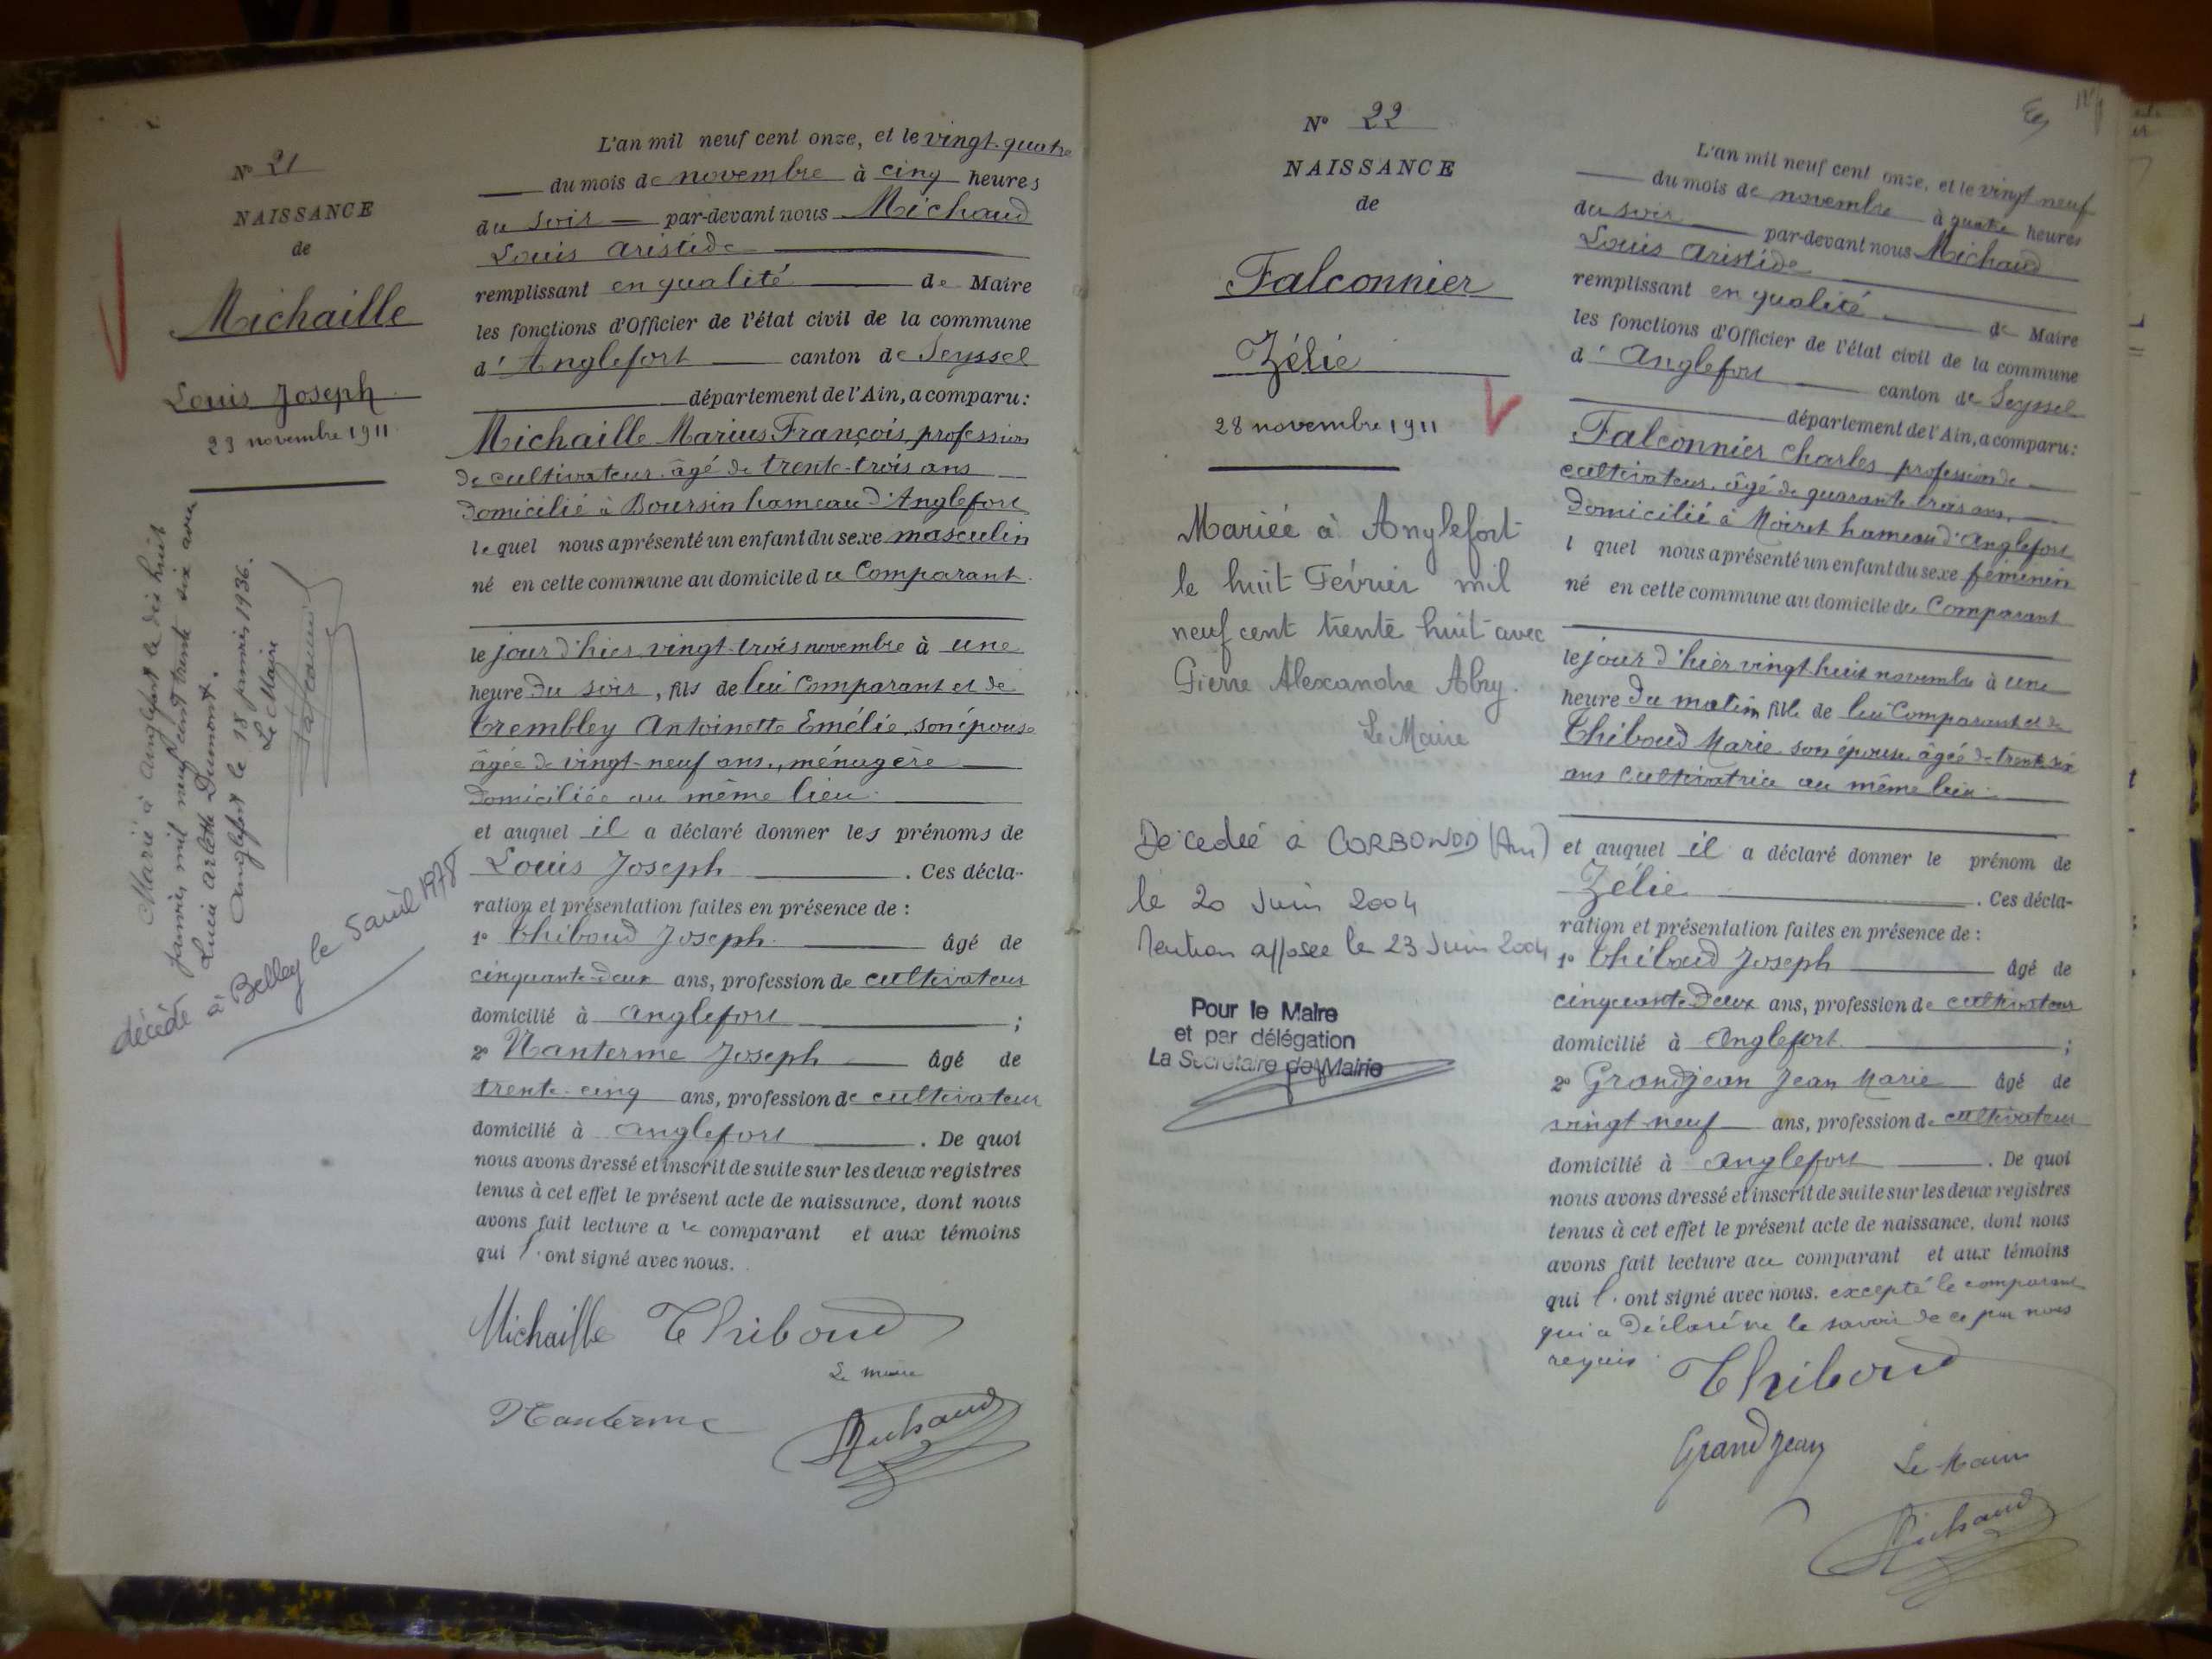 N° 21
NAISSANCE
de
Michaille
Louis Joseph
23 novembre 1911
Marié à Anglefort le dix huit
janvier mil neuf cent trente six avec
Lucie Arlette Dumont.
Anglefort le 18 janvier 1936.
Le Maire
décédé à Belley le 5 avril 1978
L'an mil neuf cent onze, et le vingt-quatre
du mois de novembre à cinq heures
du soir par-devant nous Michaud
Louis Aristide
remplissant en qualité de Maire
les fonctions d'Officier de l'état civil de la commune
d'Anglefort canton de Seyssel
département de l'Ain, a comparu:
Michaille Marius François, profession
de cultivateur, âgé de trente-trois ans
domicilié à Boursin hameau d'Anglefort
lequel nous a présenté un enfant du sexe masculin
né en cette commune au domicile du Comparant
le jour d'hier vingt-trois novembre à une
heure du soir, fils de lui Comparant et de
Trembley Antoinette Emélie, son épouse
âgée de vingt-neuf ans, ménagère
domiciliée au même lieu.
et auquel il a déclaré donner les prénoms de
Louis Joseph . Ces décla-
ration et présentation faites en présence de :
1° Thiboud Joseph âgé de
cinquante-deux ans, profession de cultivateur
domicilié à Anglefort ;
2° Nanterme Joseph âgé de
trente-cinq ans, profession de cultivateur
domicilié à Anglefort . De quoi
nous avons dressé et inscrit de suite sur les deux registres
tenus à cet effet le présent acte de naissance, dont nous
avons fait lecture a le comparant et aux témoins
qui l'ont signé avec nous.
Michaille Thiboud
Le maire
Nanterme Michaud
N° 22
NAISSANCE
de
Falconnier
Zélie
28 novembre 1911
Mariée à Anglefort
le huit Février mil
neuf cent trente huit avec
Pierre Alexandre Abry.
Le Maire
Décédée à CORBONOD (Ain)
le 20 Juin 2004
Mention apposée le 23 Juin 2004
Pour le Maire
et par délégation
La Secrétaire de Mairie
L'an mil neuf cent onze, et le vingt neuf
du mois de novembre à quatre heures
du soir par-devant nous Michaud
Louis Aristide
remplissant en qualité de Maire
les fonctions d'Officier de l'état civil de la commune
d'Anglefort canton de Seyssel
département de l'Ain, a comparu:
Falconnier Charles profession de
cultivateur, âgé de quarante trois ans,
domicilié à Moiret hameau d'Anglefort
lquel nous a présenté un enfant du sexe féminin
né en cette commune au domicile du Comparant
le jour d'hier vingt huit novembre à une
heure du matin fille de lui Comparant et de
Thiboud Marie son épouse, âgée de trente six
ans cultivatrice au même lieu.
et auquel il a déclaré donner le prénom de
Zélie . Ces décla-
ration et présentation faites en présence de :
1° Thiboud Joseph âgé de
cinquante Deux ans, profession de cultivateur
domicilié à Anglefort ;
2° Grandjean Jean Marie âgé de
vingt-neuf ans, profession de cultivateur
domicilié à Anglefort . De quoi
nous avons dressé et inscrit de suite sur les deux registres
tenus à cet effet le présent acte de naissance, dont nous
avons fait lecture au comparant et aux témoins
qui l'ont signé avec nous. excepté le comparant
qui a déclaré ne le savoir de ce par nous
requis.
Thiboud
Grandjean Le Maire
Michaud